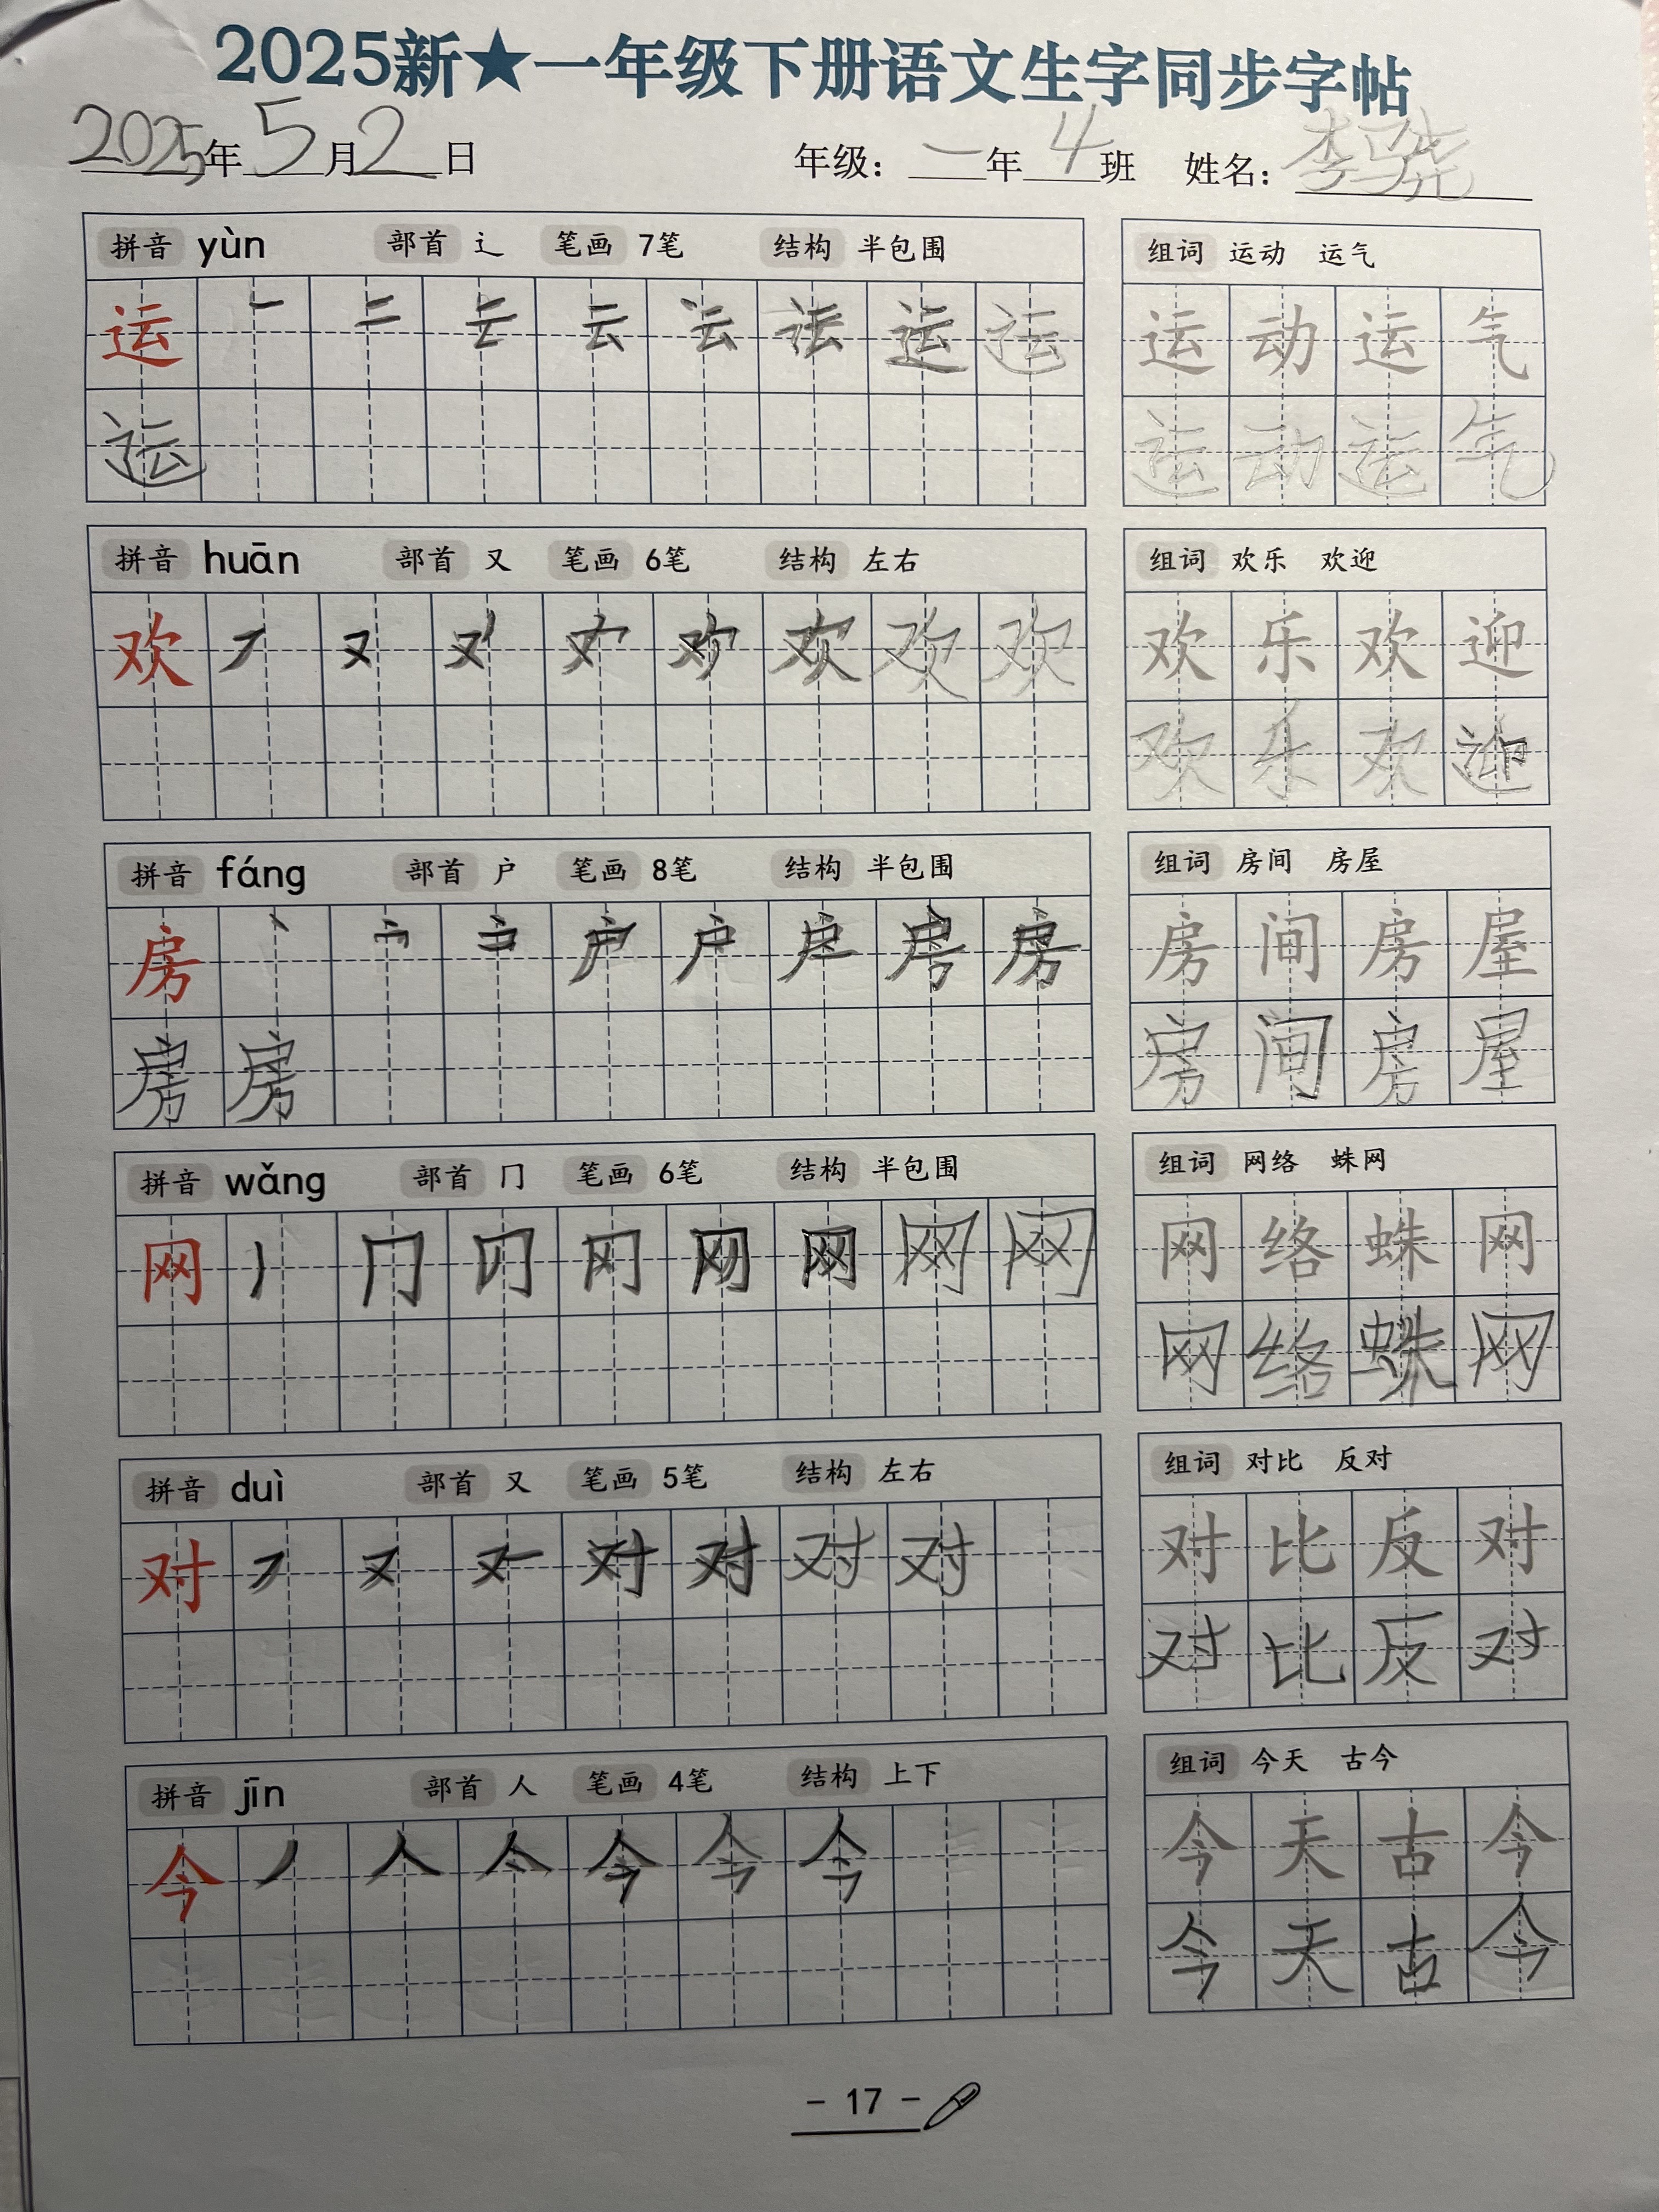 2025新★一年级下册语文生字同步字帖
2025年5月2日 年级：一年4班 姓名：李骁
拼音 yùn 部首 辶 笔画 7笔 结构 半包围
运 一 二 云 运 运
运
组词 运动 运气
运 动 运 气
运 动 运 气
拼音 huān 部首 又 笔画 6笔 结构 左右
欢 又 欢 欢 欢
组词 欢乐 欢迎
欢 乐 欢 迎
欢 乐 欢 迎
拼音 fáng 部首 户 笔画 8笔 结构 半包围
房 丶 户 户 房 房
房 房
组词 房间 房屋
房 间 房 屋
房 间 房 屋
拼音 wǎng 部首 冂 笔画 6笔 结构 半包围
网 丨 冂 网 网 网
组词 网络 蛛网
网 络 蛛 网
网 络 蛛 网
拼音 duì 部首 又 笔画 5笔 结构 左右
对 又 对 对 对
组词 对比 反对
对 比 反 对
对 比 反 对
拼音 jīn 部首 人 笔画 4笔 结构 上下
今 丿 人 亼 今 今 今
组词 今天 古今
今 天 古 今
今 天 古 今
- 17 -